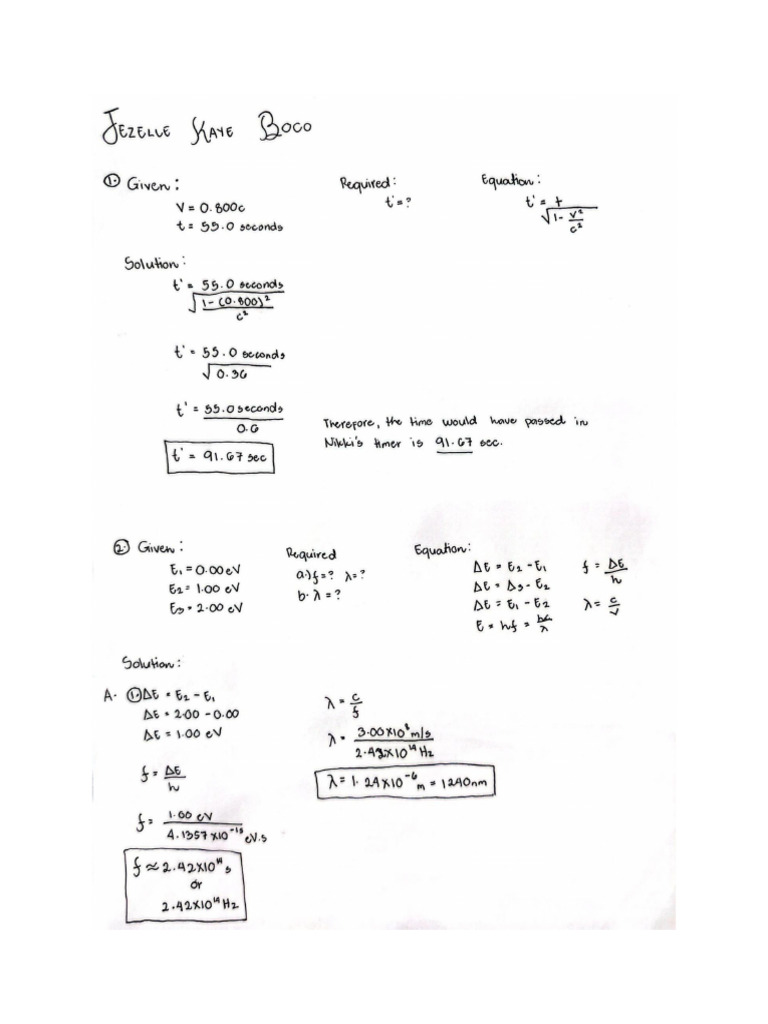 Jezelle Kaye Boco
1. Given:
V = 0.800c
t = 55.0 seconds
Required:
t' = ?
Equation:
t' = t / √(1 - v²/c²)
Solution:
t' = 55.0 seconds / √(1 - (0.800)²/c²)
t' = 55.0 seconds / √0.36
t' = 55.0 seconds / 0.6
t' = 91.67 sec
Therefore, the time would have passed in
Nikki's timer is 91.67 sec.
2. Given:
E₁ = 0.00 eV
E₂ = 1.00 eV
E₃ = 2.00 eV
Required
a.) f = ? λ = ?
b. λ = ?
Equation:
ΔE = E₂ - E₁
ΔE = Δ₃ - E₂
ΔE = E₁ - E₂
E = hf = hc/λ
f = ΔE/h
λ = c/v
Solution:
A. 1. ΔE = E₂ - E₁
ΔE = 2.00 - 0.00
ΔE = 1.00 eV
f = ΔE/h
f = 1.00 eV / 4.1357 x 10⁻¹⁵ eV.s
f ≈ 2.42 x 10¹⁴ s
or
2.42 x 10¹⁴ Hz
λ = c/f
λ = 3.00 x 10⁸ m/s / 2.42 x 10¹⁴ Hz
λ = 1.24 x 10⁻⁶ m = 1240 nm